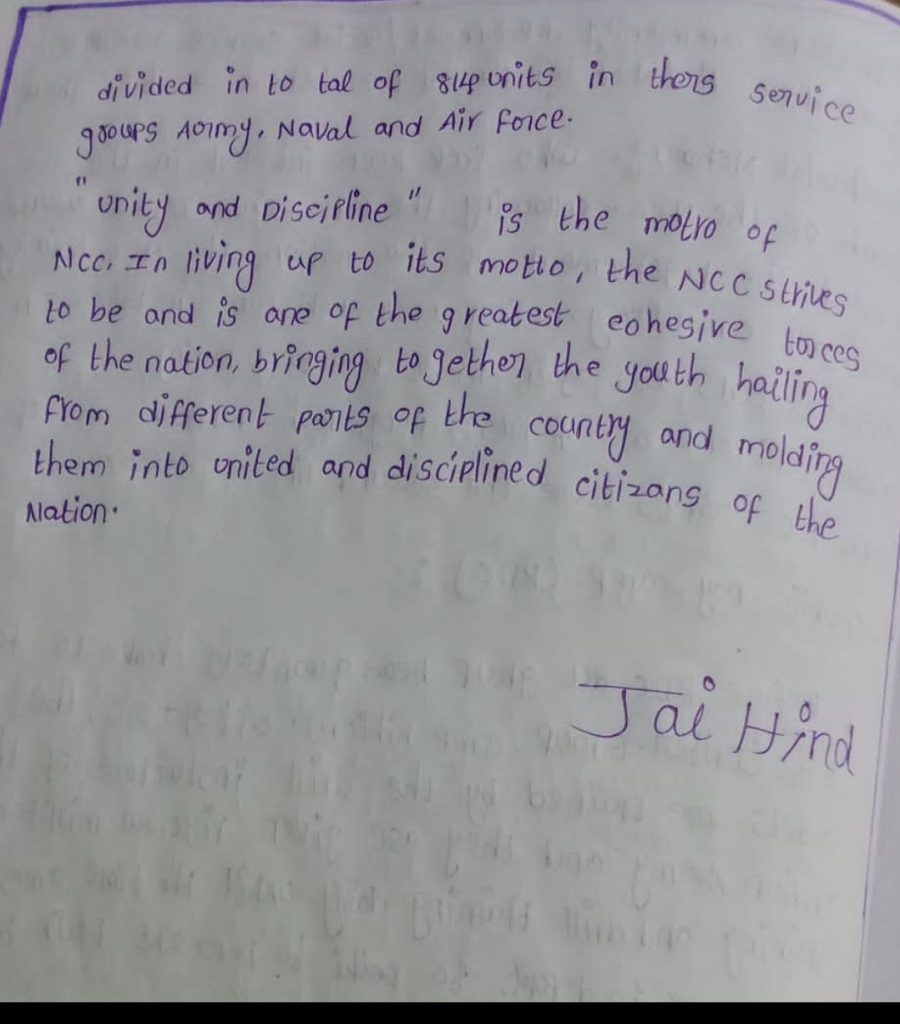 divided in to tal of 814 units in thers service
groups Army, Naval and Air Force.
"unity and Discipline" is the motro of
NCC. In living up to its motto, the NCC strives
to be and is one of the greatest cohesive forces
of the nation, bringing together, the youth hailing
from different parts of the country and molding
them into united and disciplined citizans of the
Nation.
Jai Hind